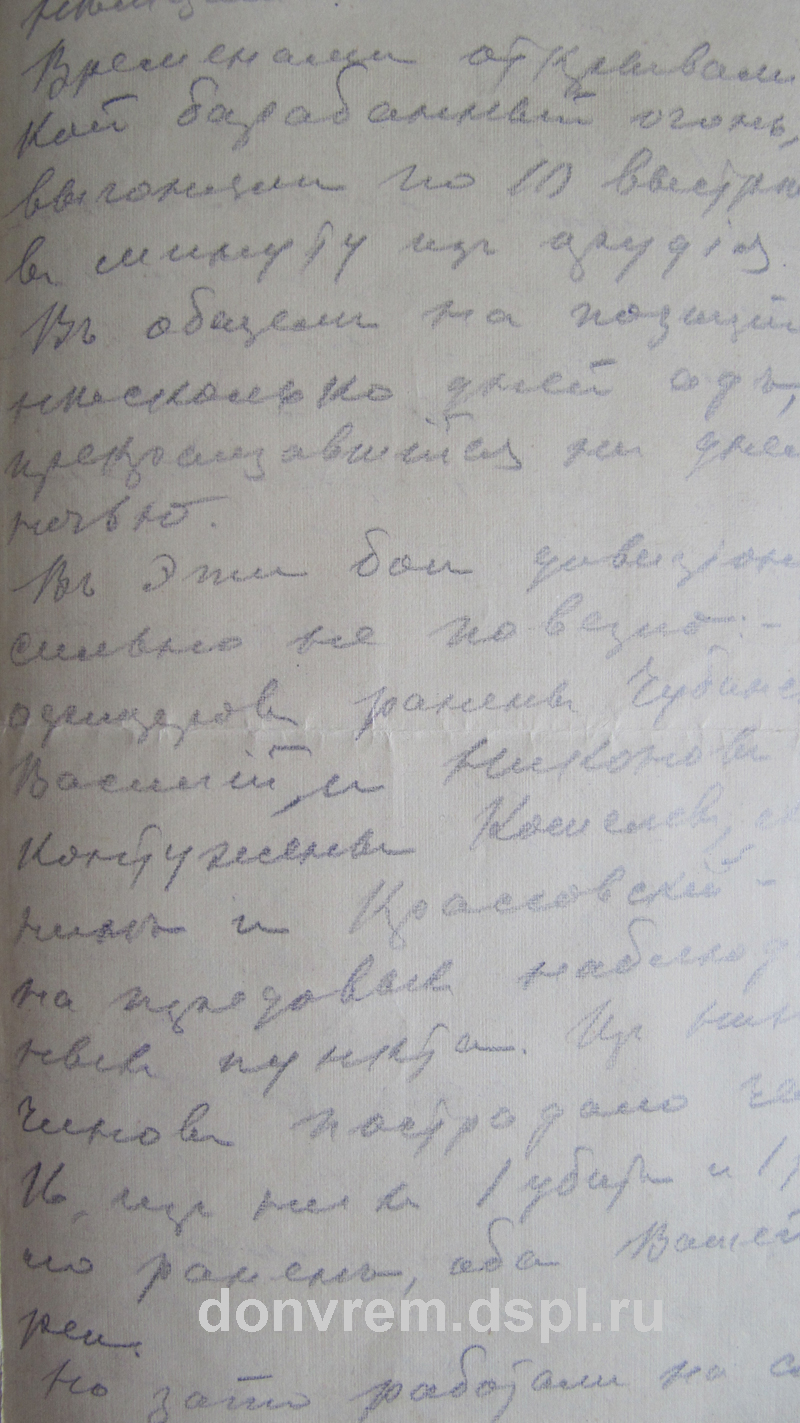 Временами открывали
кой барабанный огонь,
выгонили по 10 выстре
въ минуту изъ орудія.
Въ общемъ на позиціи
нѣсколько дней адъ,
прекращавшійся ни дне
ночью.
Въ эти бои дивизіон
сильно не повезло: -
офицеровъ ранены Чубинс
Василій и Никоновъ
контужены Кошелевъ,
нинъ и Красовскій -
на передовыхъ наблюд
ныхъ пункта. Изъ ниж
чиновъ пострадало че
10, изъ нихъ 1 убитъ и 1
ло раненъ, оба Вашей
реи.
Но зато работали на с
donvrem.dspl.ru